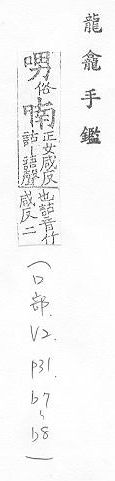 龍龕手鑑
㖠俗喃正女咸反詀丨語聲也詀音竹咸反二
(口部. V2. P31. b7~b8)